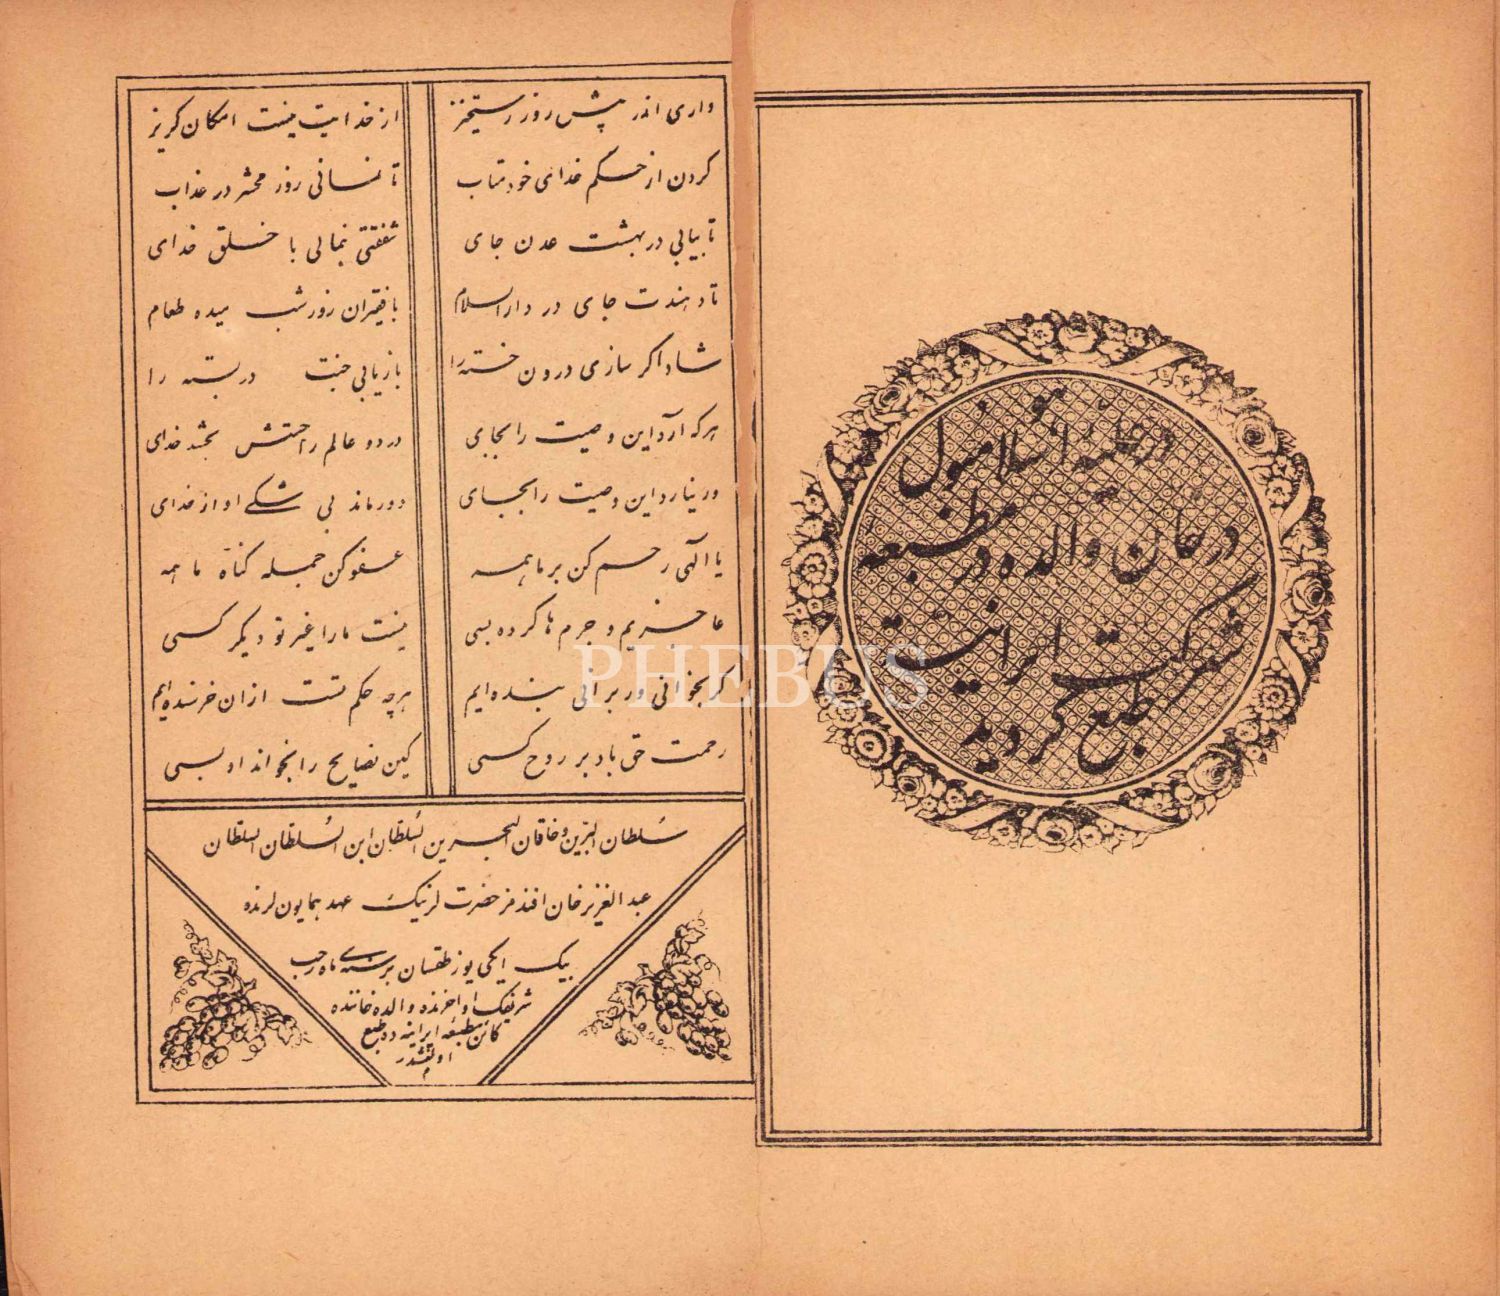 هو
در علیّه اسلامبول
در خان والده در مطبعهٔ
شرکت ایرانیت
طبع گردید
داری اندر پیش روز رستخیز از خدایت نیست امکان کریز
کردن از حکم خدای خود متاب تا نمانی روز محشر در عذاب
تا بیابی در بهشت عدن جای شفقتی بنمای با خلق خدای
تا دهندت جای در دارالسلام با فقیران روز و شب میده طعام
شاد اکر سازی درون خسته را باز یابی جنت در بسته را
هر که آرد این وصیت را بجای در دو عالم راحتش بخشد خدای
ور نیارد این وصیت را بجای دور ماند بی شکی او از خدای
یا الهی رحم کن بر ما همه عفو کن جمله کناه ما همه
عاجزیم و جرم ها کرده بسی نیست مارا غیر تو دیکر کسی
کر بخوانی ور برانی بنده ایم هر چه حکم تست ازان خرسنده ایم
رحمت حق باد بر روح کسی کین نصایح را بخواند او بسی
سلطان البرین و خاقان البحرین السلطان ابن السلطان السلطان
عبد العزیز خان افندمز حضرتلرینک عهد همایونلرنده
بیک ایکی یوز طقسان برسنه‌سی ماه رجب
شریفک اواخرنده والده خاننده
کائن مطبعه ایرانیه ده طبع
اولنمشدر
م
PHEBUS